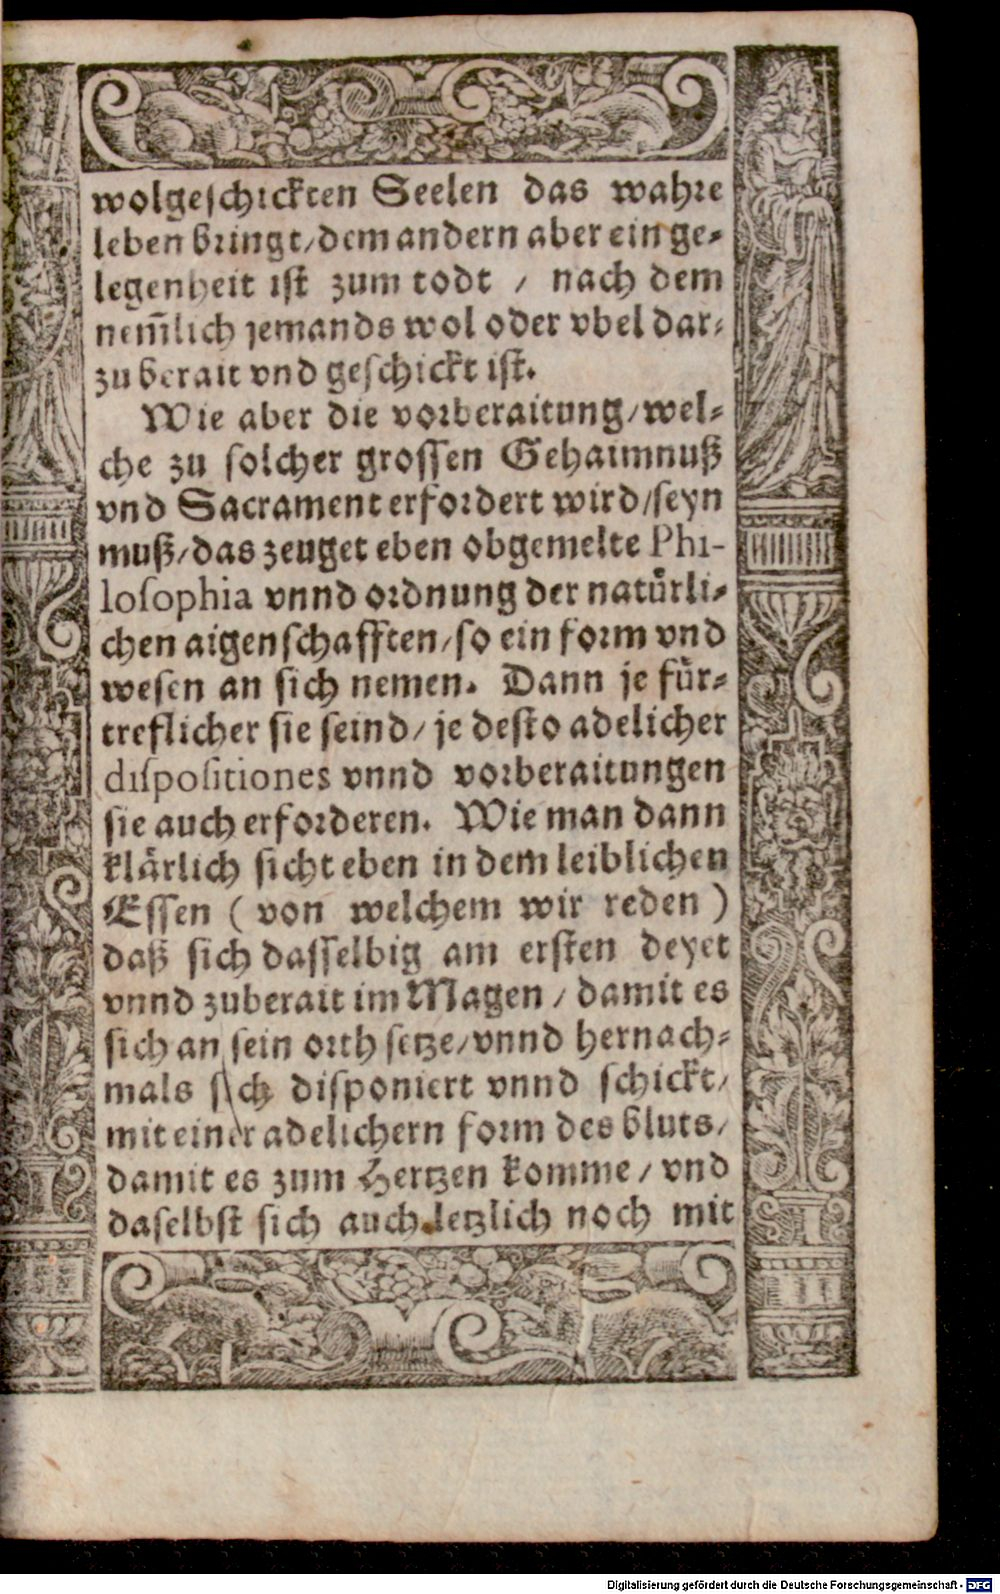 wolgeschickten Seelen das wahre
leben bringt/dem andern aber ein ge-
legenheit ist zum todt / nach dem
nem̃lich jemands wol oder vbel dar-
zu berait vnd geschickt ist.
Wie aber die vorberaitung/wel-
che zu solcher grossen Gehaimnuß
vnd Sacrament erfordert wird/seyn
muß/das zeuget eben obgemelte Phi-
losophia vnnd ordnung der natürli-
chen aigenschafften/so ein form vnd
wesen an sich nemen. Dann je für-
treflicher sie seind/je desto adelicher
dispositiones vnnd vorberaitungen
sie auch erforderen. Wie man dann
klärlich sicht eben in dem leiblichen
Essen (von welchem wir reden)
daß sich dasselbig am ersten deyet
vnnd zuberait im Magen/damit es
sich an sein orth setze/vnnd hernach-
mals sich disponiert vnnd schickt/
mit einer adelichern form des bluts/
damit es zum Hertzen komme/vnd
daselbst sich auch letzlich noch mit
Digitalisierung gefördert durch die Deutsche Forschungsgemeinschaft - DFG